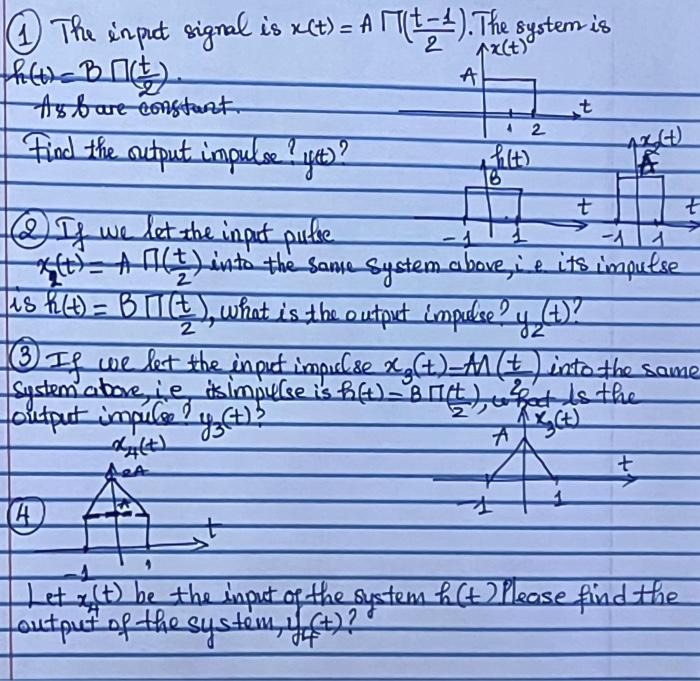 ① The input signal is x(t) = A Π(t-1/2). The system is
h(t) = B Π(t/2).
A & b are constant.
x(t)
A
t
1 2
Find the output impulse? y(t)?
h(t)
B
t
-1 1
x2(t)
A
t
-1 1
② If we let the input pulse
x2(t) = A Π(t/2) into the same system above, i.e. its impulse
is h(t) = B Π(t/2), what is the output impulse? y2(t)?
③ If we let the input impulse x3(t) = Λ(t/2) into the same
system above, i.e, its impulse is h(t) = B Π(t/2), what is the
output impulse? y3(t)?
x3(t)
A
t
-1 1
④
x4(t)
2A
A
t
-1 1
Let x4(t) be the input of the system h(t) Please find the
output of the system, y4(t)?